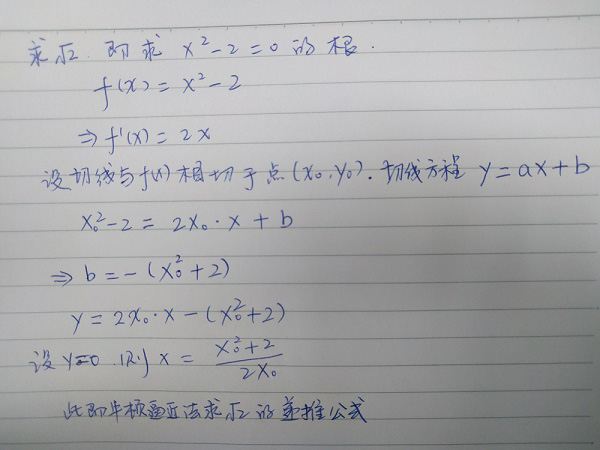 求√2. 即求 x²-2=0 的根.
f(x) = x²-2
⇒ f'(x) = 2x
设切线与f(x)相切于点(x₀,y₀). 切线方程 y=ax+b
x₀²-2 = 2x₀·x + b
⇒ b = -(x₀²+2)
y = 2x₀·x - (x₀²+2)
设 y=0. 则 x = (x₀²+2)/(2x₀)
此即牛顿逼近法求√2的递推公式